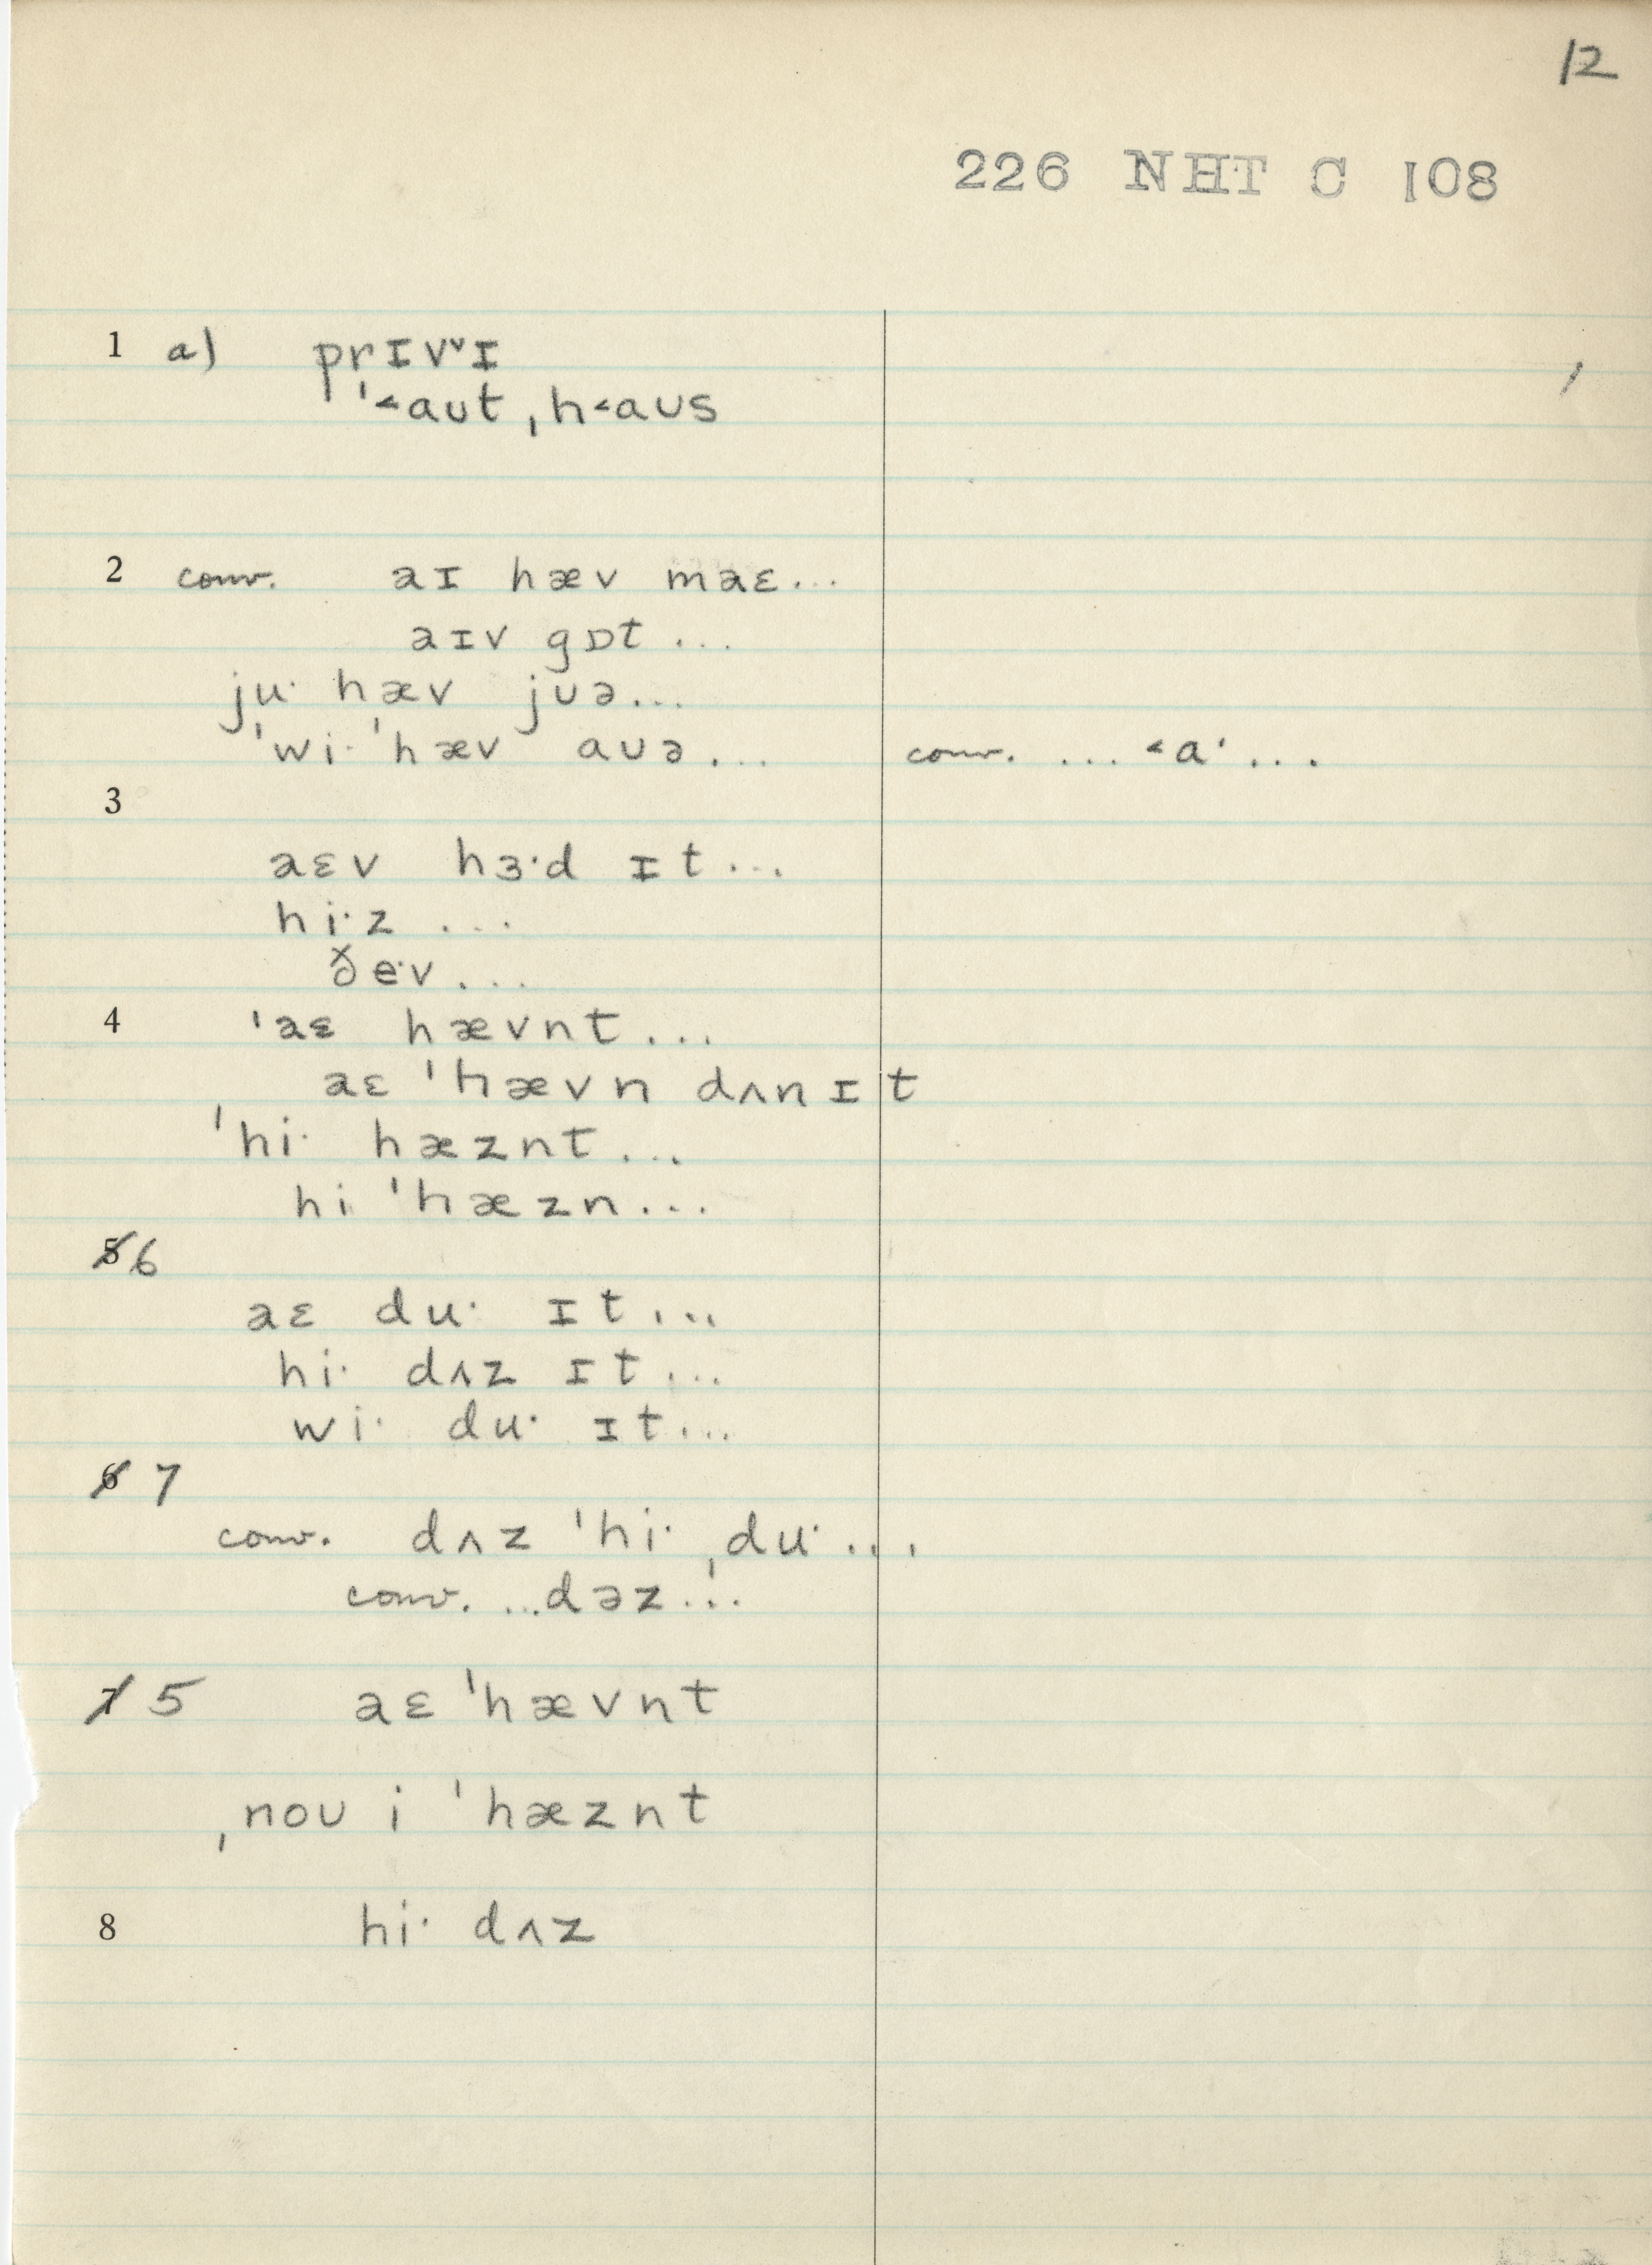 12
226 NHT C 108
1 a) prɪvˇɪ
ˈ˂aʊt ˌh˂aʊs
2 conv. aɪ hæv maɛ...
aɪv gɒt ...
ju· hæv jʊə...
ˈwi· ˈhæv aʊə... conv. ... ˂a· ...
3
aɛv hɜ·d ɪt...
hi·z ...
ðe·v...
4 ˈaɛ hævnt...
aɛ ˈhævn dʌn ɪt
ˈhi· hæznt...
hi ˈhæzn...
5 6
aɛ du· ɪt...
hi· dʌz ɪt...
wi· du· ɪt...
6 7
conv. dʌz ˈhi· ˌdu· ...
conv. ...dəz...
7 5 aɛ ˈhævnt
ˌnoʊ i ˈhæznt
8 hi· dʌz